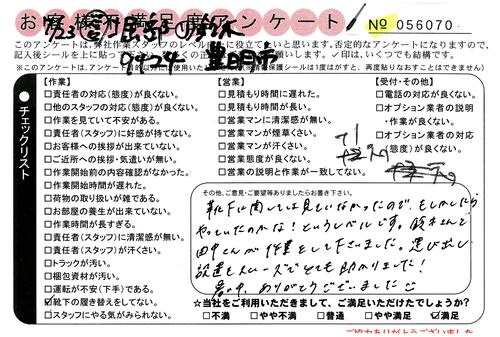 お客様満足度アンケート
№ 056070
このアンケートは、弊社作業スタッフのレベル向上に役立てたいと思います。否定的なアンケートになりますので、
記入後シールを上に貼って
✓印は、いくつでも結構です。
【作業】
□責任者の対応(態度)が良くない。
□他のスタッフの対応(態度)が良くない。
□作業を見ていて不安がある。
□責任者(スタッフ)に好感が持てない。
□お客様への挨拶が出来ていない。
□ご近所への挨拶・気遣いが無い。
□作業開始前の内容確認がなかった。
□作業開始時間が遅れた。
□荷物の取り扱いが雑である。
□お部屋の養生が出来ていない。
□作業時間が長すぎる。
□責任者(スタッフ)に清潔感が無い。
□責任者(スタッフ)が汗くさい。
□トラックが汚い。
□梱包資材が汚い。
□運転が不安(下手)である。
☑靴下の履き替えをしてない。
□スタッフにやる気がみられない。
【営業】
□見積もり時間に遅れた。
□見積もり時間が長い。
□営業マンに清潔感が無い。
□営業マンが煙草くさい。
□営業マンが汗くさい。
□営業態度が良くない。
□営業の説明と作業が一致してない。
【受付・その他】
□電話の対応が良くない。
□オプション業者の説明
・作業が良くない。
□オプション業者の対応
(態度)が良くない。
チェックリスト
その他、ご意見・ご要望等ありましたらお書き下さい。
靴下に関しては見ていなかったので、もしかしたら
やっていたのかな!というレベルです。鈴木さんと
田中さんが作業をして下さいました。運び出し
設置もスムーズでとても助かりました!
暑い中、ありがとうございました
☆当社をご利用いただきまして、ご満足いただけたでしょうか?
□不満 □やや不満 □普通 □やや満足 ☑満足
ご協力ありがとうございました